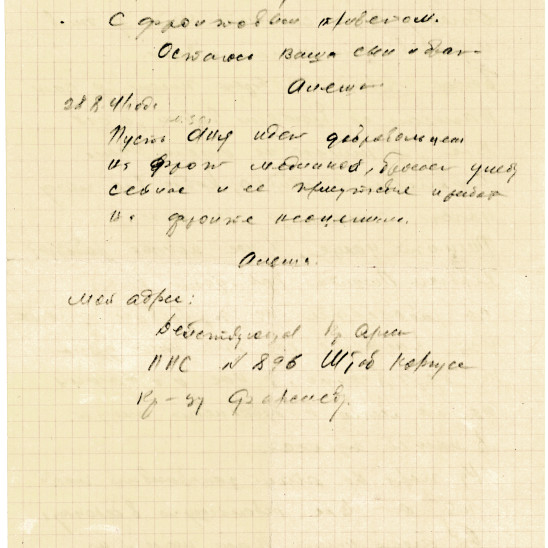 С фронтовым приветом.
Остаюсь Ваш сын и брат
Алеша
28 8 41 года
Пусть Аня идет добровольцем
на фронт медичкой, бросает учебу
сейчас и ее присутствие и работа
на фронте неоценимы.
Алеша.
Мой адрес:
Действующая Кр Армия
ППС № 896 Штаб корпуса
Кр-цу